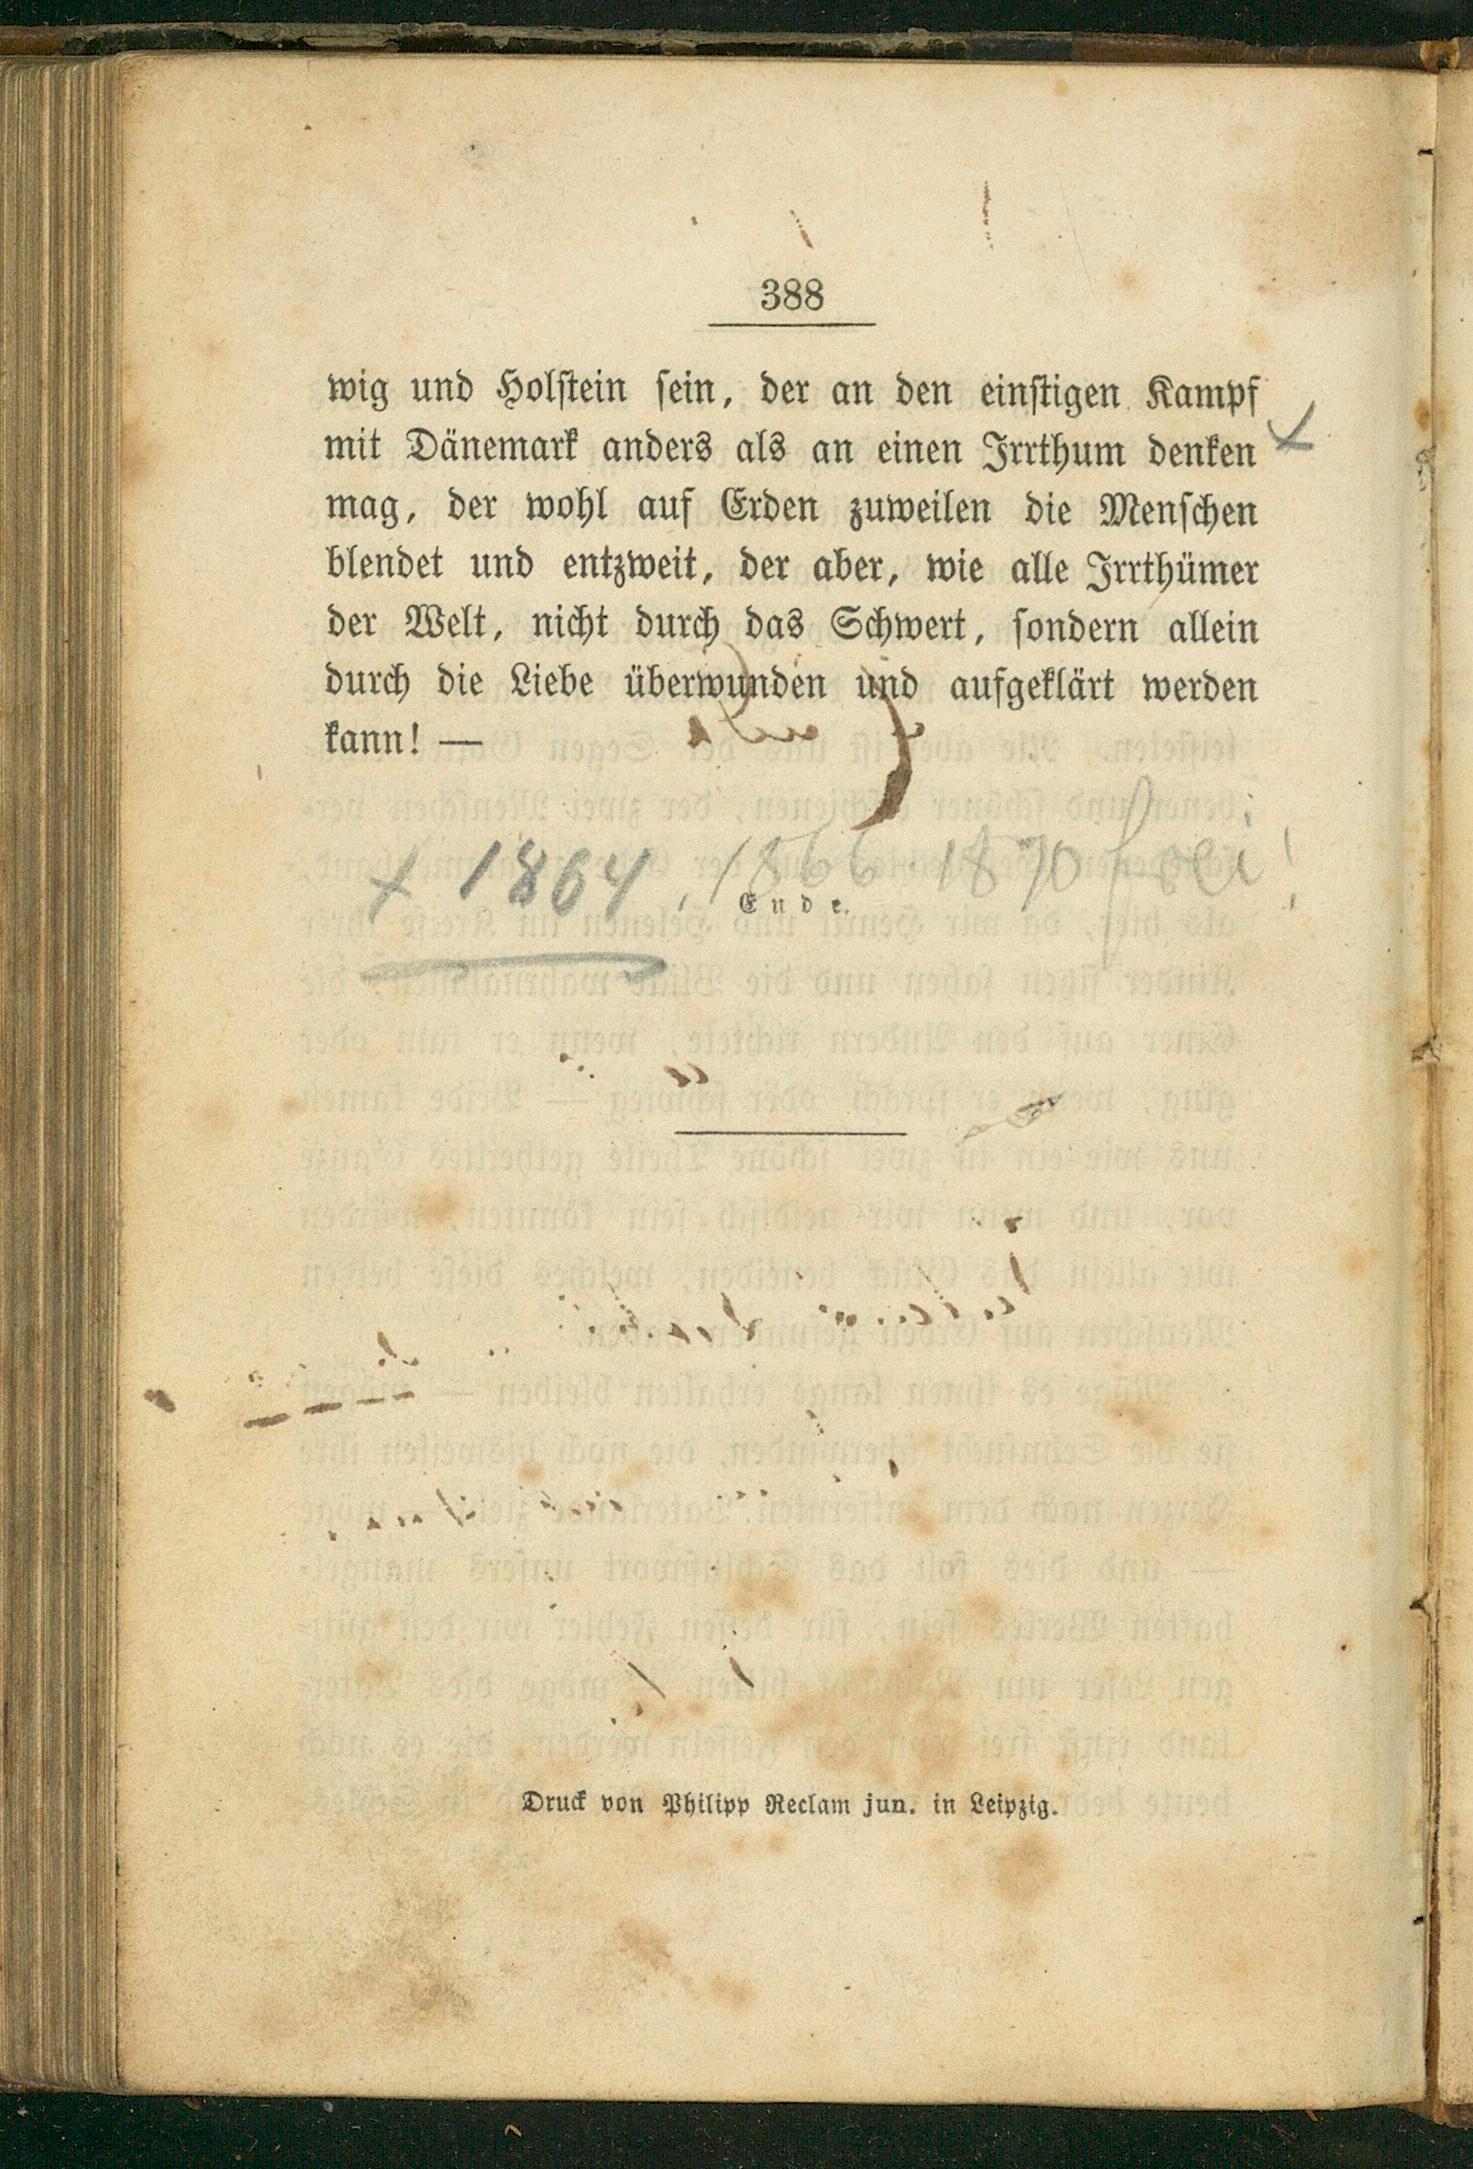 388
wig und Holstein sein, der an den einstigen Kampf
mit Dänemark anders als an einen Irrthum denken
mag, der wohl auf Erden zuweilen die Menschen
blendet und entzweit, der aber, wie alle Irrthümer
der Welt, nicht durch das Schwert, sondern allein
durch die Liebe überwunden und aufgeklärt werden
kann! —
x 1864, 1866 1870 frei!
Ende.
Druck von Philipp Reclam jun. in Leipzig.